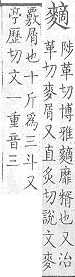 䵂
陟革切博雅䵂也又治
革切麥屑又直炙切說文麥
覈屑也十斤爲三斗又
亭歷切文一重音三